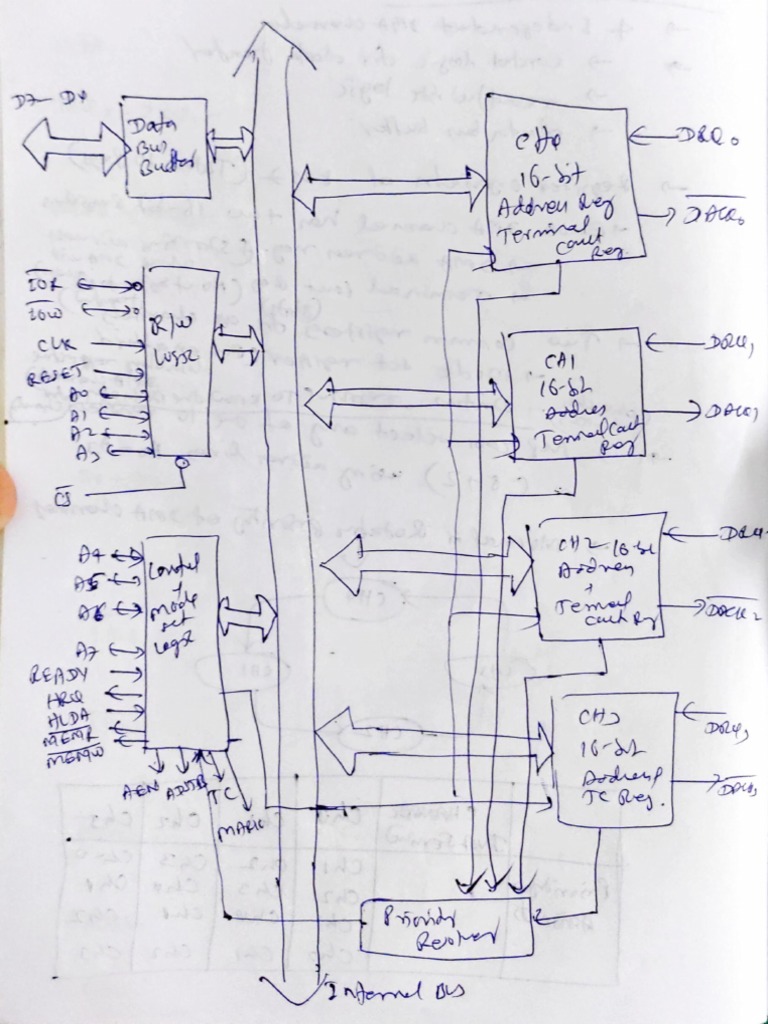 D7-D0
Data
Bus
Buffer
IOR
IOW
CLK
RESET
A0
A1
A2
A3
CS
R/W
Logic
A4
A5
A6
A7
READY
HRQ
HLDA
MEMR
MEMW
Control
+
Mode
set
Logic
AEN
ADSTB
TC
MARK
CH0
16-bit
Address Reg
Terminal
Count
Reg
DRQ0
DACK0
CH1
16-bit
Address
Terminal Count
Reg
DRQ1
DACK1
CH2 16-bit
Address
+
Terminal
Count Reg
DACK2
CH3
16-bit
Address
TC Reg.
DRQ3
DACK3
Priority
Resolver
Internal Bus